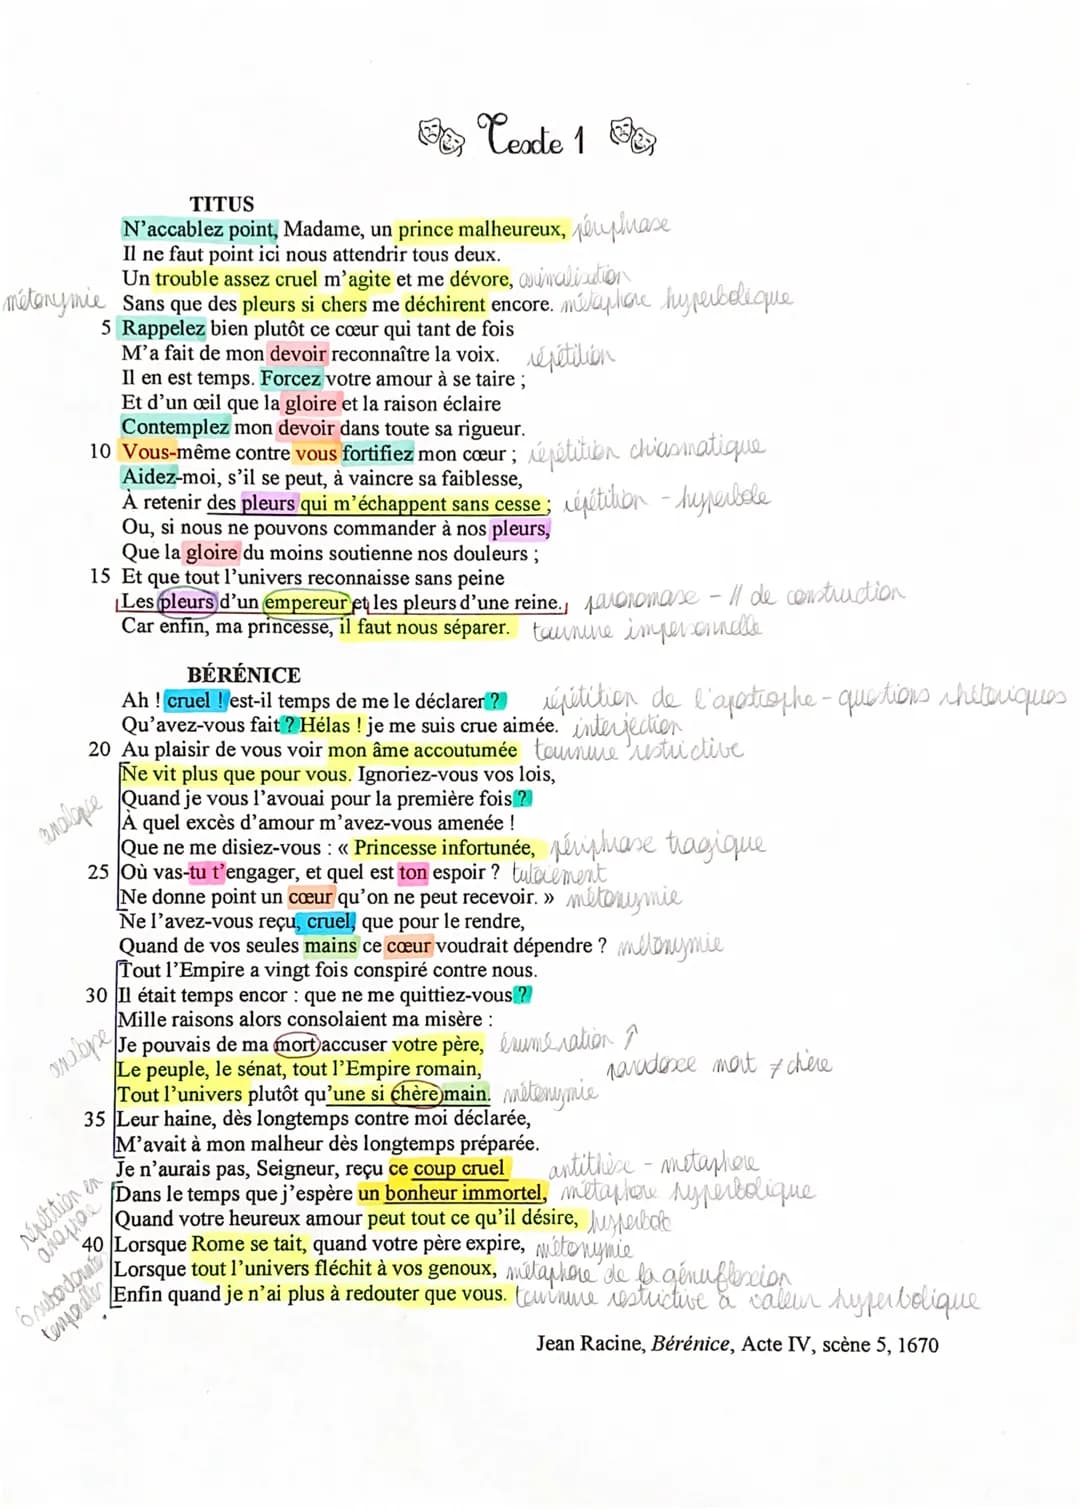 Texte 1
TITUS
N'accablez point, Madame, un prince malheureux, périphrase
Il ne faut point ici nous attendrir tous deux.
Un trouble assez cruel m'agite et me dévore, animalisation
métonymie Sans que des pleurs si chers me déchirent encore. métaphore hyperbolique
5 Rappelez bien plutôt ce cœur qui tant de fois
M'a fait de mon devoir reconnaître la voix. répétition
Il en est temps. Forcez votre amour à se taire ;
Et d'un œil que la gloire et la raison éclaire
Contemplez mon devoir dans toute sa rigueur.
10 Vous-même contre vous fortifiez mon cœur ; répétition chiasmatique
Aidez-moi, s'il se peut, à vaincre sa faiblesse,
À retenir des pleurs qui m'échappent sans cesse ; répétition - hyperbole
Ou, si nous ne pouvons commander à nos pleurs,
Que la gloire du moins soutienne nos douleurs ;
15 Et que tout l'univers reconnaisse sans peine
Les pleurs d'un empereur et les pleurs d'une reine. paronomase - // de construction
Car enfin, ma princesse, il faut nous séparer. tournure impersonnelle
BÉRÉNICE
Ah ! cruel ! est-il temps de me le déclarer ? répétition de l'apostrophe - questions rhétoriques
Qu'avez-vous fait ? Hélas ! je me suis crue aimée. interjection
20 Au plaisir de vous voir mon âme accoutumée tournure restrictive
Ne vit plus que pour vous. Ignoriez-vous vos lois,
analepse Quand je vous l'avouai pour la première fois ?
À quel excès d'amour m'avez-vous amenée !
Que ne me disiez-vous : « Princesse infortunée, périphrase tragique
25 Où vas-tu t'engager, et quel est ton espoir ? tutoiement
Ne donne point un cœur qu'on ne peut recevoir. » métonymie
Ne l'avez-vous reçu, cruel, que pour le rendre,
Quand de vos seules mains ce cœur voudrait dépendre ? métonymie
Tout l'Empire a vingt fois conspiré contre nous.
30 Il était temps encor : que ne me quittiez-vous ?
Mille raisons alors consolaient ma misère :
analepse Je pouvais de ma mort accuser votre père, énumération ↑
Le peuple, le sénat, tout l'Empire romain, paradoxe mort ≠ chère
Tout l'univers plutôt qu'une si chère main. métonymie
35 Leur haine, dès longtemps contre moi déclarée,
M'avait à mon malheur dès longtemps préparée.
Je n'aurais pas, Seigneur, reçu ce coup cruel antithèse - métaphore
Dans le temps que j'espère un bonheur immortel, métaphore hyperbolique
répétition en anaphore Quand votre heureux amour peut tout ce qu'il désire, hyperbole
40 Lorsque Rome se tait, quand votre père expire, métonymie
Lorsque tout l'univers fléchit à vos genoux, métaphore de la génuflexion
6 subordonnées temporelles Enfin quand je n'ai plus à redouter que vous. tournure restrictive à valeur hyperbolique
Jean Racine, Bérénice, Acte IV, scène 5, 1670